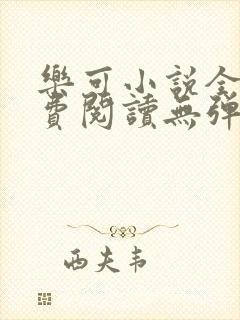 樂可小說全
費閱讀無彈
西夫韦